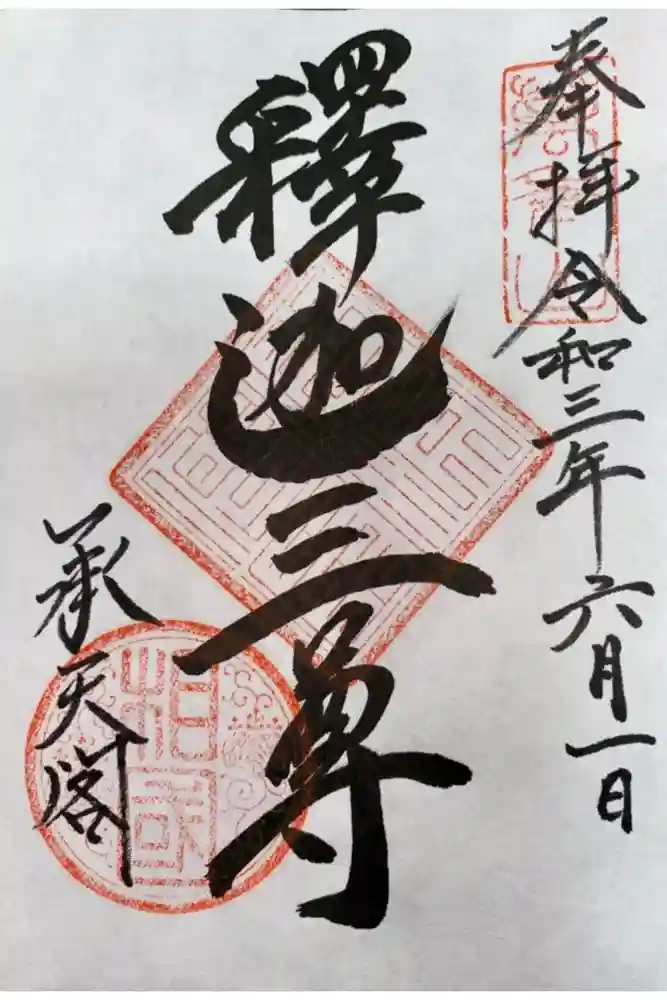 奉拝令和三年六月一日
釋迦三尊
承天閣
相國